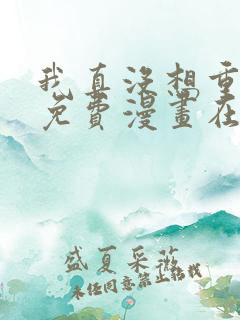 我真没想重
免費漫畫在
盛夏采薇
未经同意禁止转载